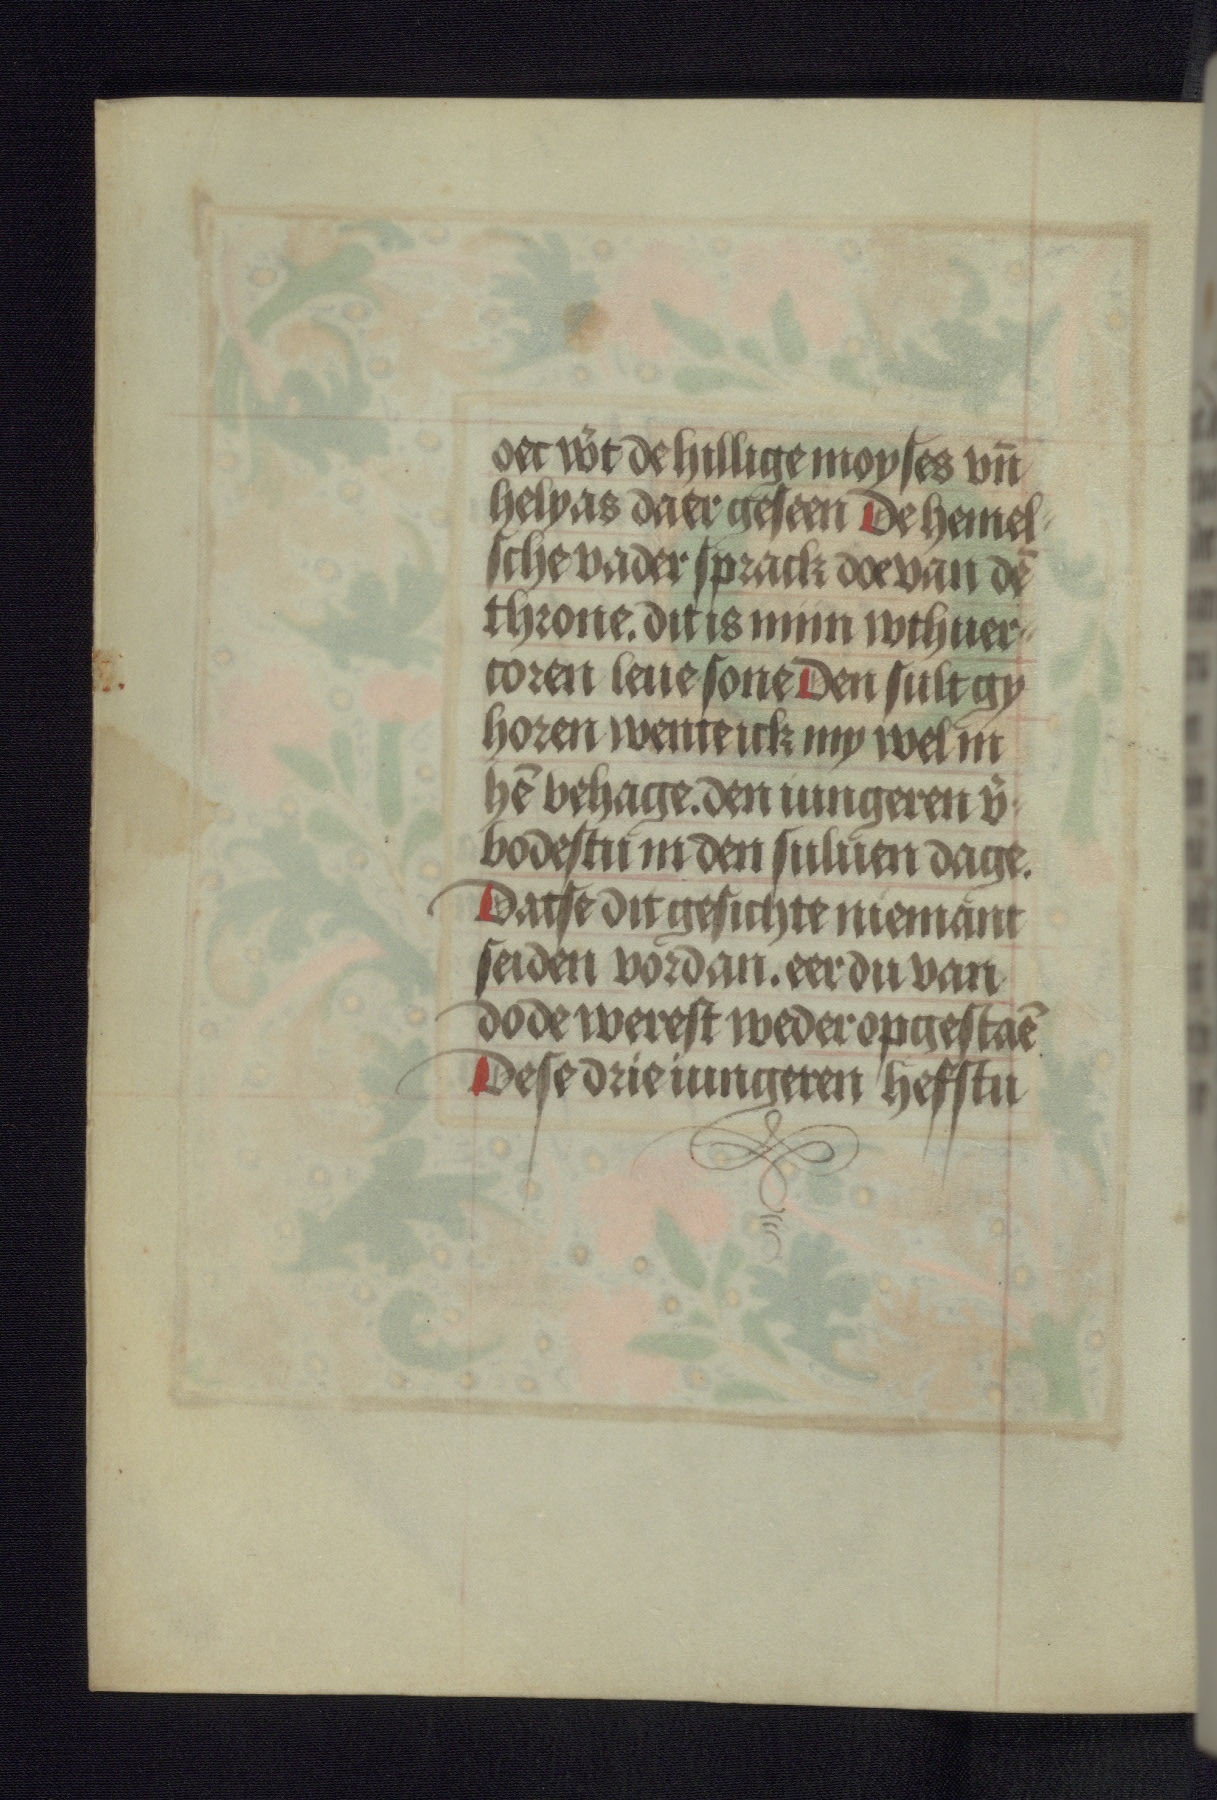 oec wᷓt de hillige moyses vn̄
helyas daer geseen De hemel-
sche vader sprack doe van dē
throne. dit is minn wthuer-
coren leue sone Den sult gy
horen wente ick my wel in
hē behage. den iungeren v̄-
bodestu in den suluen dage.
Dat se dit gesichte niemant
seiden vordan. eer du van
dode werest weder opgestaē
Dese drie iungeren hefstu